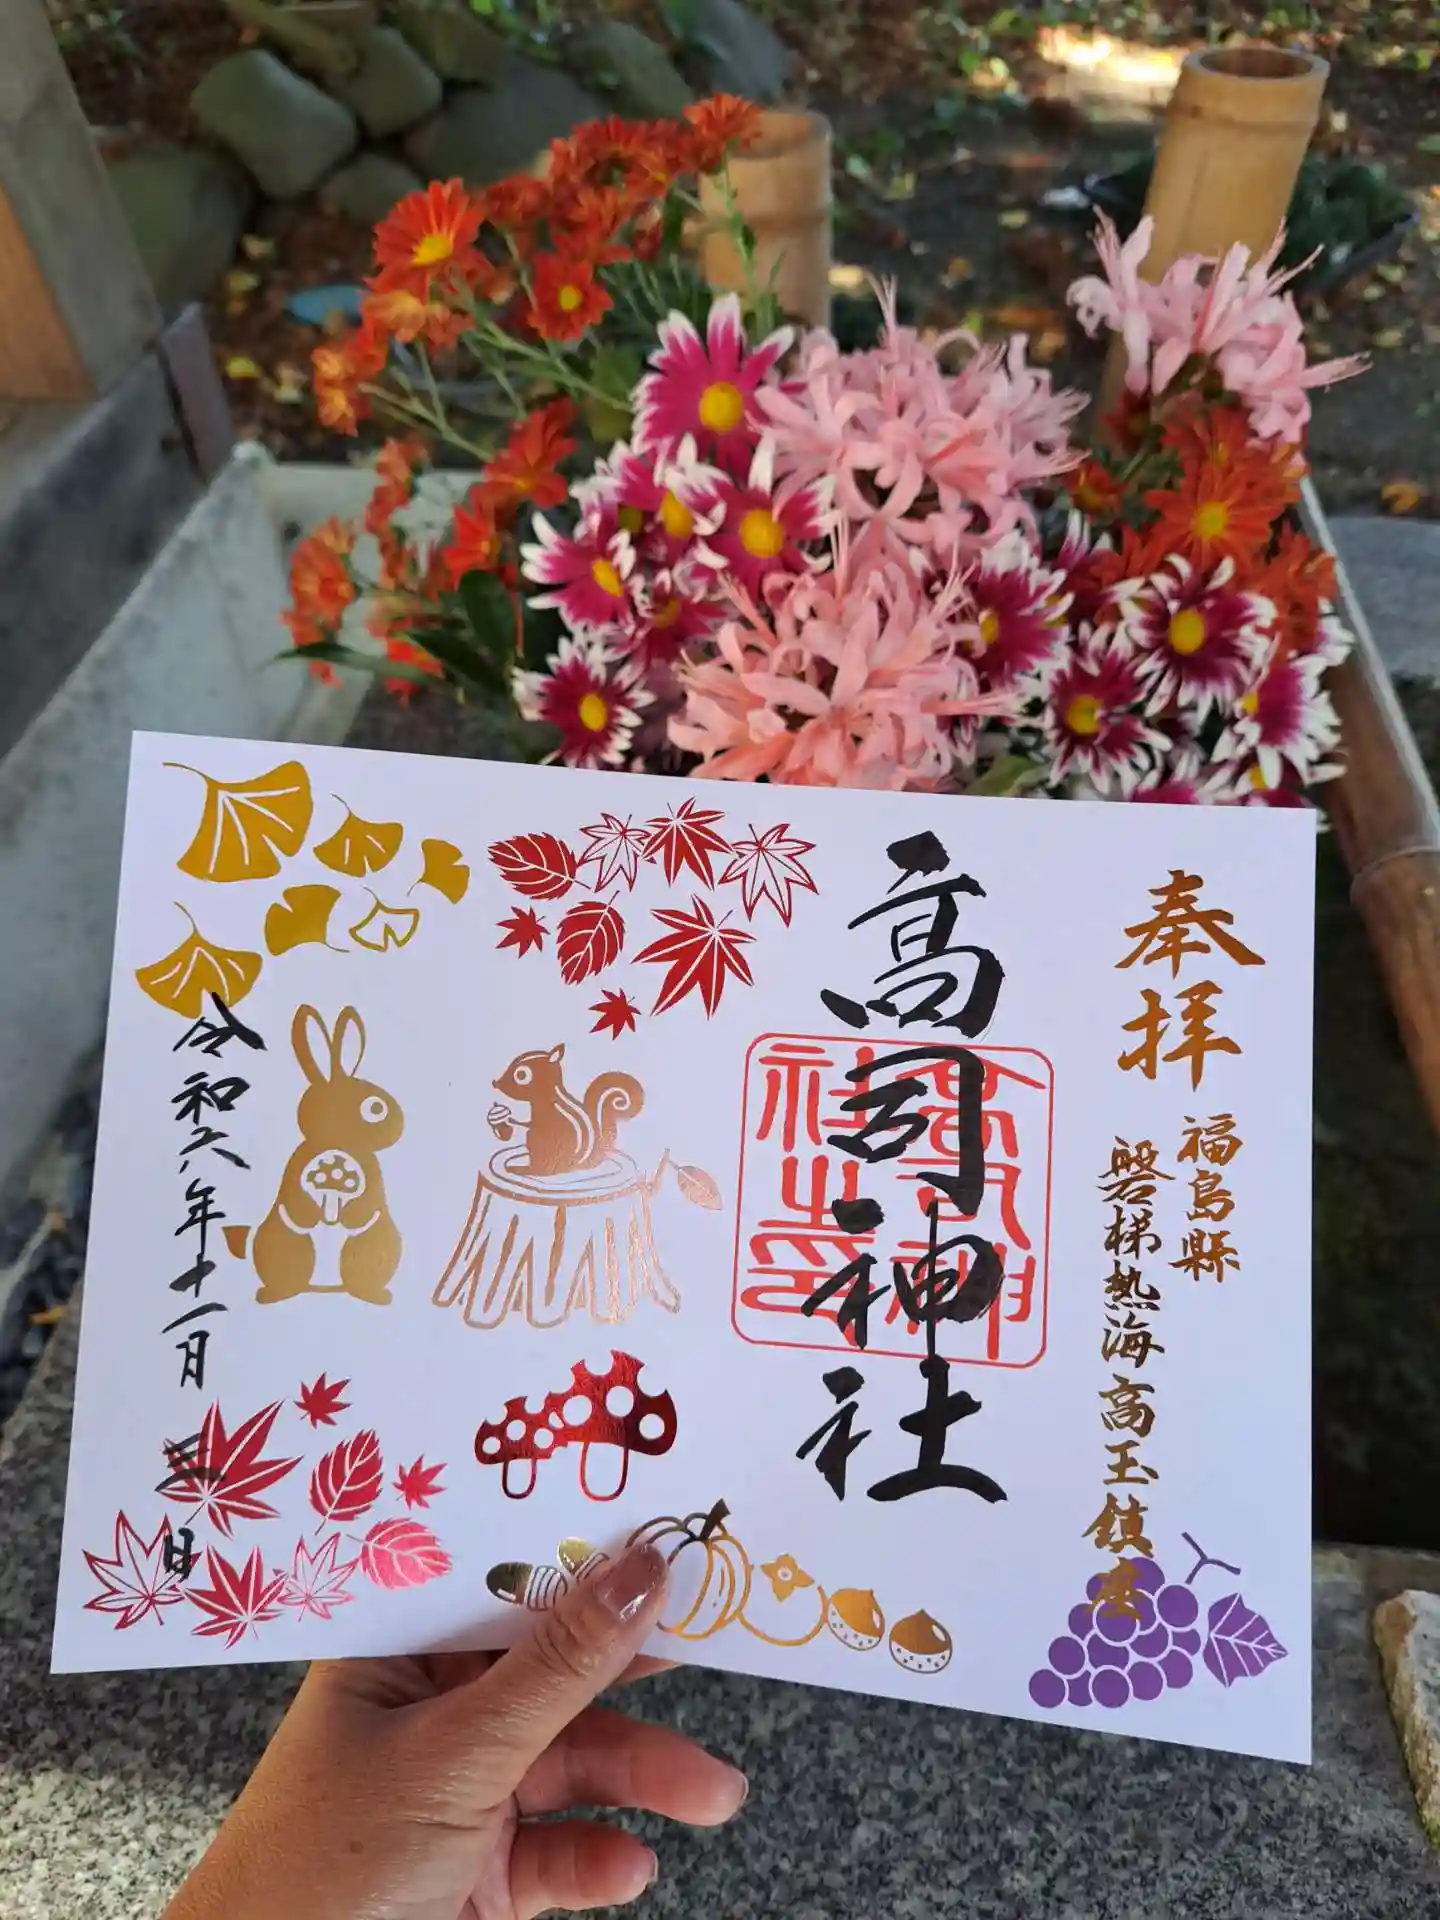 奉拝
福島縣
磐梯熱海高玉鎮座
高司神社
高司神
社之印
令和六年十一月三日